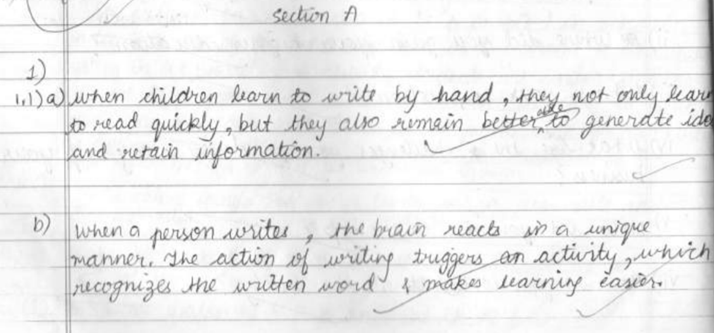 Section A
1)
1.1) a) when children learn to write by hand, they not only learn
to read quickly, but they also remain better able to generate
and retain information.
b) When a person writes, the brain reacts in a unique
manner. The action of writing triggers an activity, which
recognizes the written word & makes learning easier.